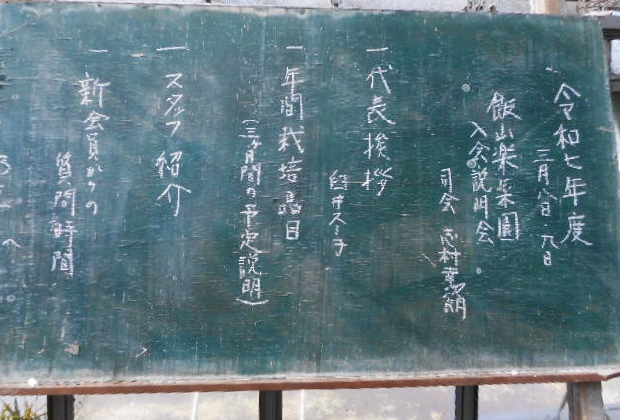 令和七年度
三月八日・九日
飯山楽菜園
入会説明会
司会 志村
一 代表挨拶
臼井スミ子
一 年間栽培品目
(三ヶ月間の予定説明)
一 スタッフ紹介
一 新会員からの
質問時間